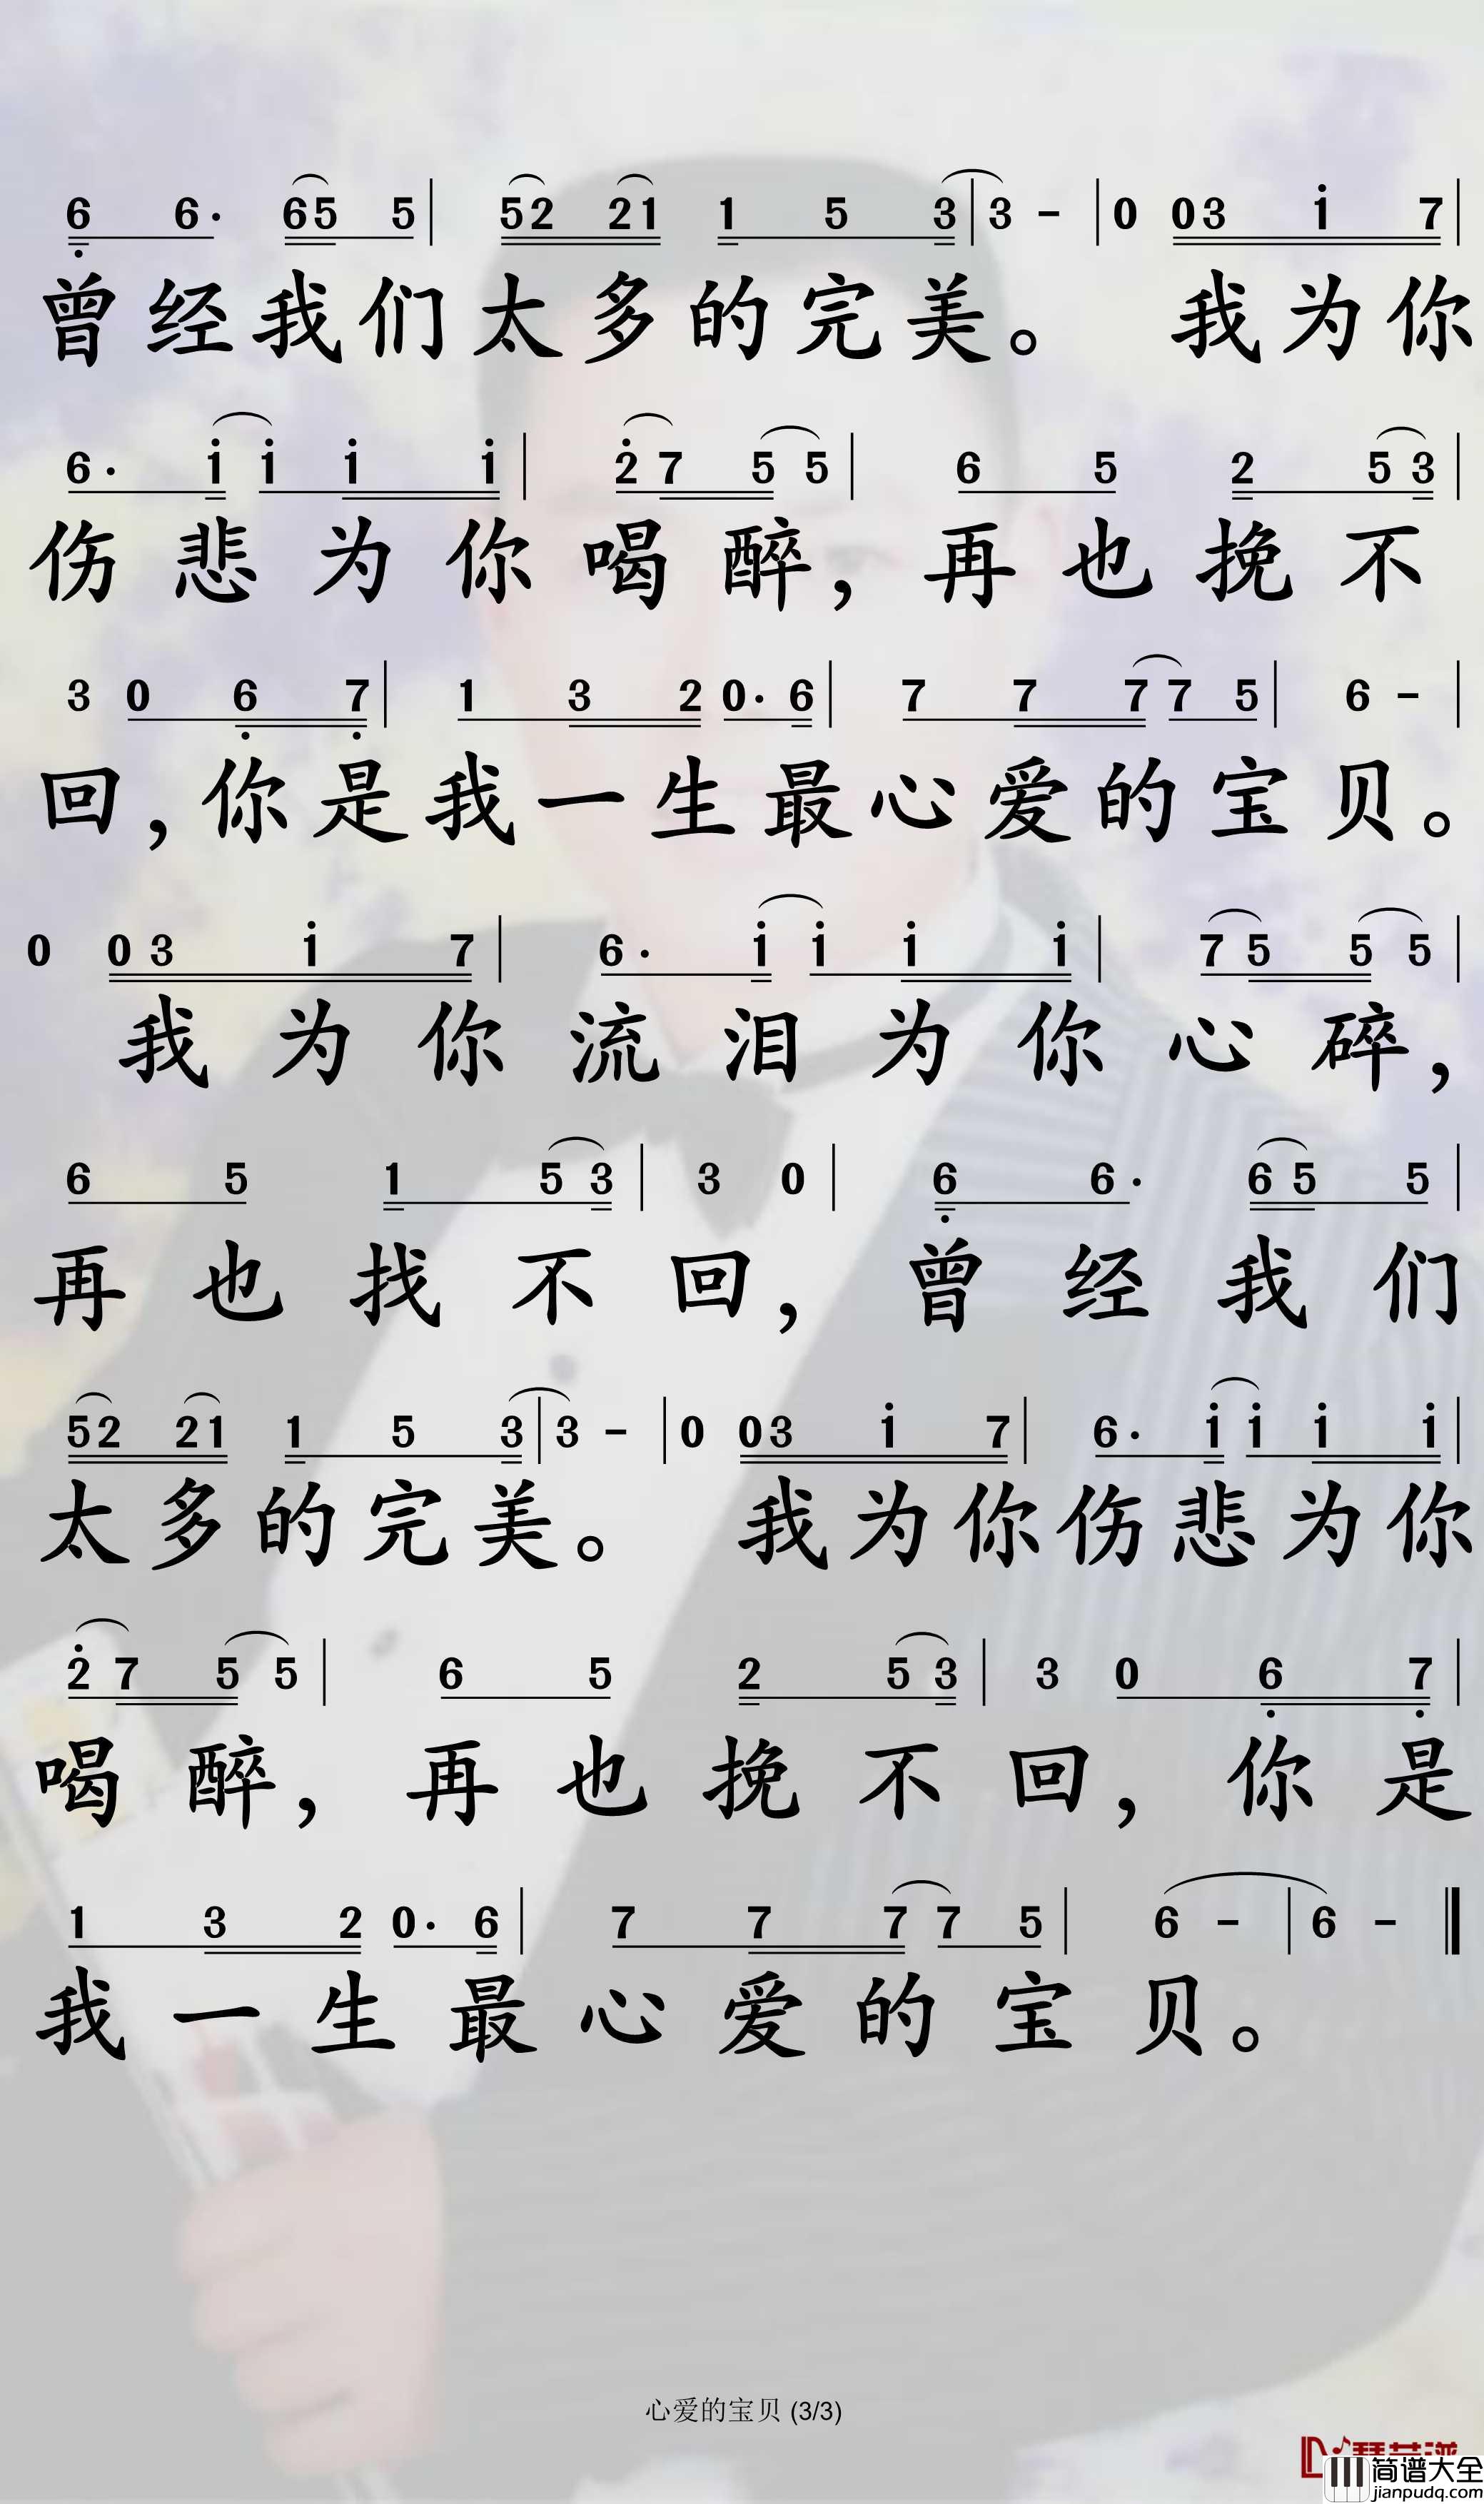 6 6· 65 5 | 52 21 1 5 3 | 3 - | 0 03 i 7 |
曾经我们太多的完美。 我为你
6· i i i i | 2 7 5 5 | 6 5 2 5 3 |
伤悲为你喝醉，再也挽不
3 0 6 7 | 1 3 2 0· 6 | 7 7 7 7 5 | 6 - |
回，你是我一生最心爱的宝贝。
0 0 3 i 7 | 6· i i i i | 7 5 5 5 |
我为你流泪为你心碎，
6 5 1 5 3 | 3 0 | 6 6· 6 5 5 |
再也找不回，曾经我们
52 21 1 5 3 | 3 - | 0 03 i 7 | 6· i i i i |
太多的完美。 我为你伤悲为你
2 7 5 5 | 6 5 2 5 3 | 3 0 6 7 |
喝醉，再也挽不回，你是
1 3 2 0· 6 | 7 7 7 7 5 | 6 - | 6 - ‖
我一生最心爱的宝贝。
心爱的宝贝 (3/3)
简谱大全
jianpudq.com